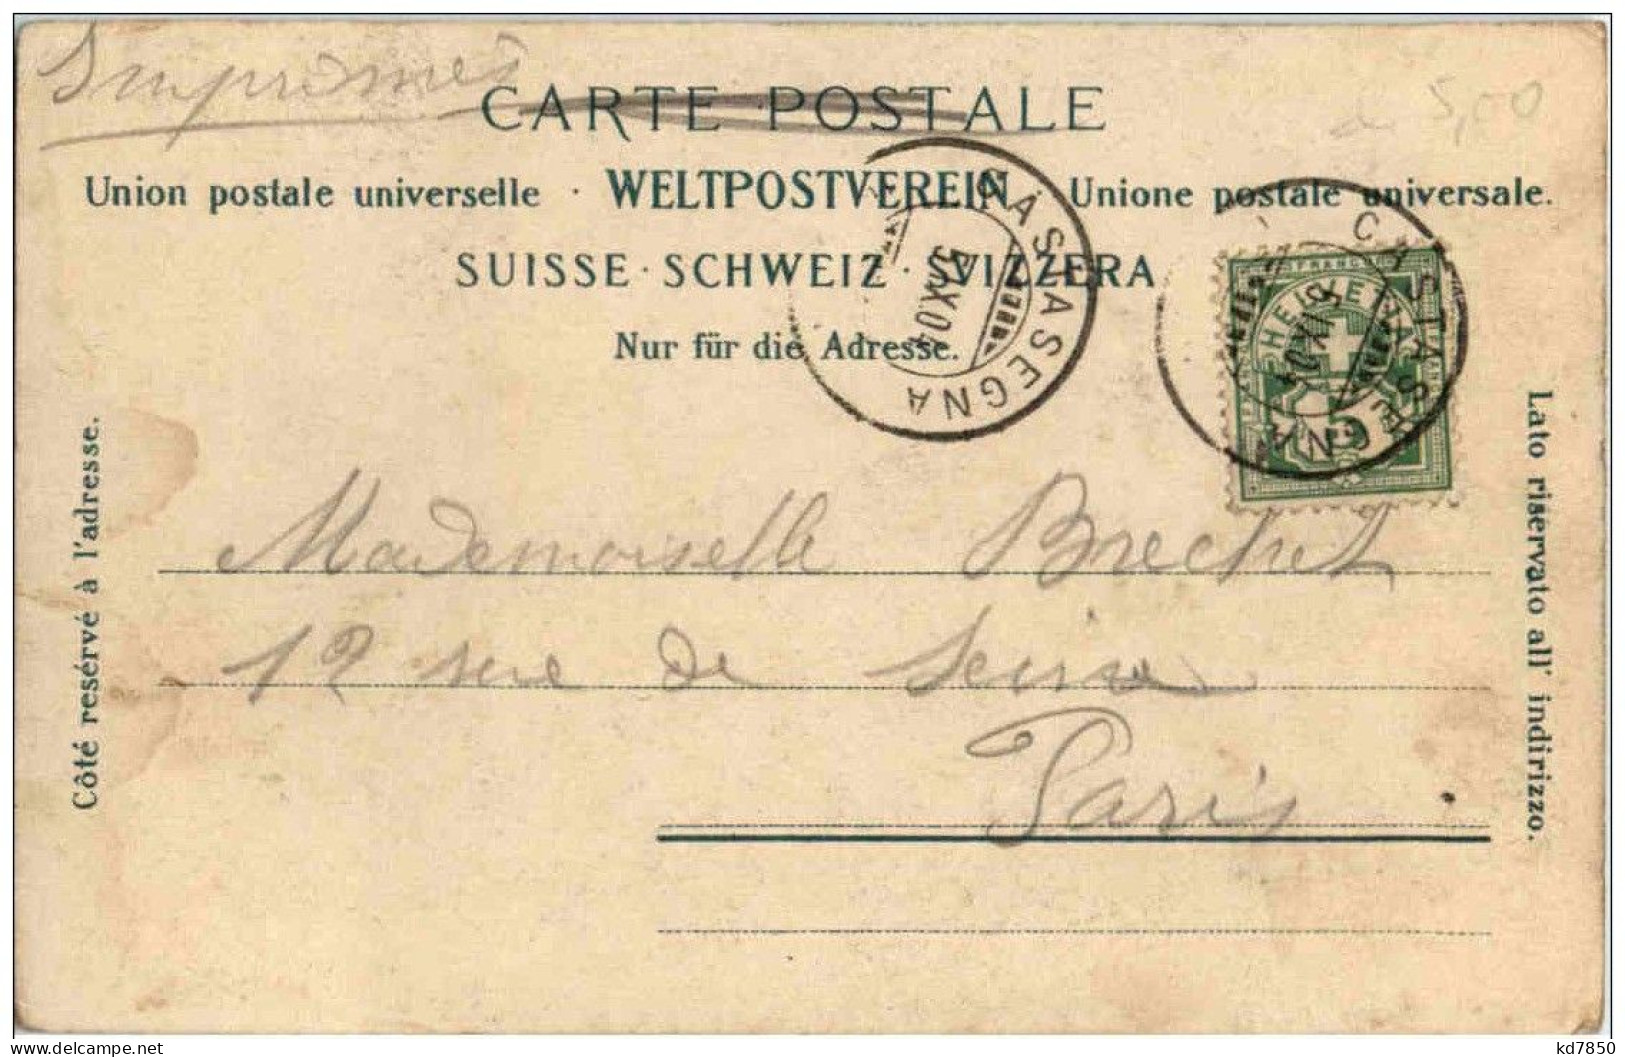 Imprimés
CARTE POSTALE
5,00
Union postale universelle · WELTPOSTVEREIN · Unione postale universale.
SUISSE · SCHWEIZ · SVIZZERA
Nur für die Adresse.
CASTASEGNA
5.IX.04
CASTASEGNA
5.IX.04
FRANCO
HELVETIA
5
Côté resérvé à l'adresse.
Lato riservato all' indirizzo.
Mademoiselle Brechet
12 rue de Seine
Paris
delcampe.net
kd7850